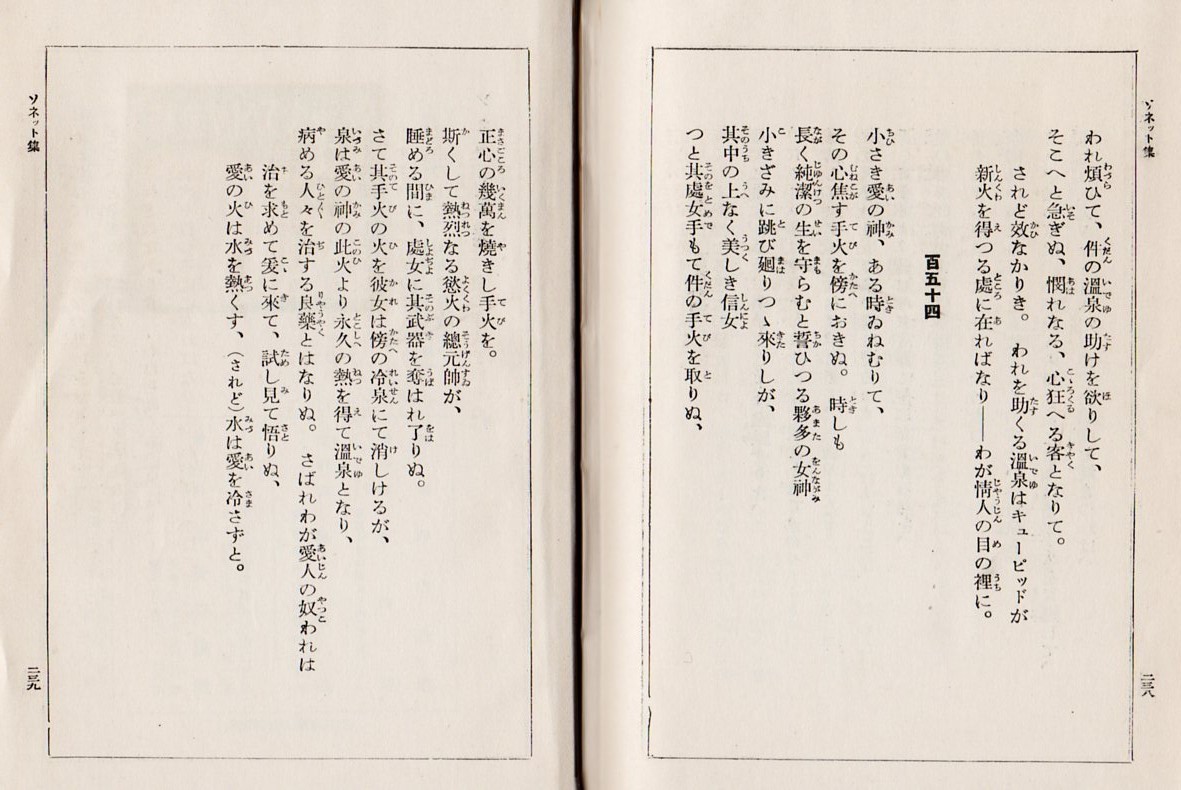 ソネット集
われ煩ひて、件の溫泉の助けを欲りして、
そこへと急ぎぬ、憫れなる、心狂へる客となりて。
されど效なかりき。われを助くる溫泉はキューピッドが
新火を得つる處に在ればなり――わが情人の目の裡に。
百五十四
小さき愛の神、ある時ゐねむりて、
その心焦す手火を傍におきぬ。時しも
長く純潔の生を守らむと誓ひつる夥多の女神
小きざみに跳び廻りつゝ來りしが、
其中の上なく美しき信女
つと其處女手もて件の手火を取りぬ、
二三八
ソネット集
正心の幾萬を燒きし手火を。
斯くして熱烈なる慾火の總元帥が、
睡める間に、處女に其武器を奪はれ了りぬ。
さて其手火の火を彼女は傍の冷泉にて消しけるが、
泉は愛の神の此火より永久の熱を得て溫泉となり、
病める人々を治する良藥とはなりぬ。さばれわが愛人の奴われは
治を求めて爰に來て、試し見て悟りぬ、
愛の火は水を熱くす、(されど)水は愛を冷さずと。
二三九